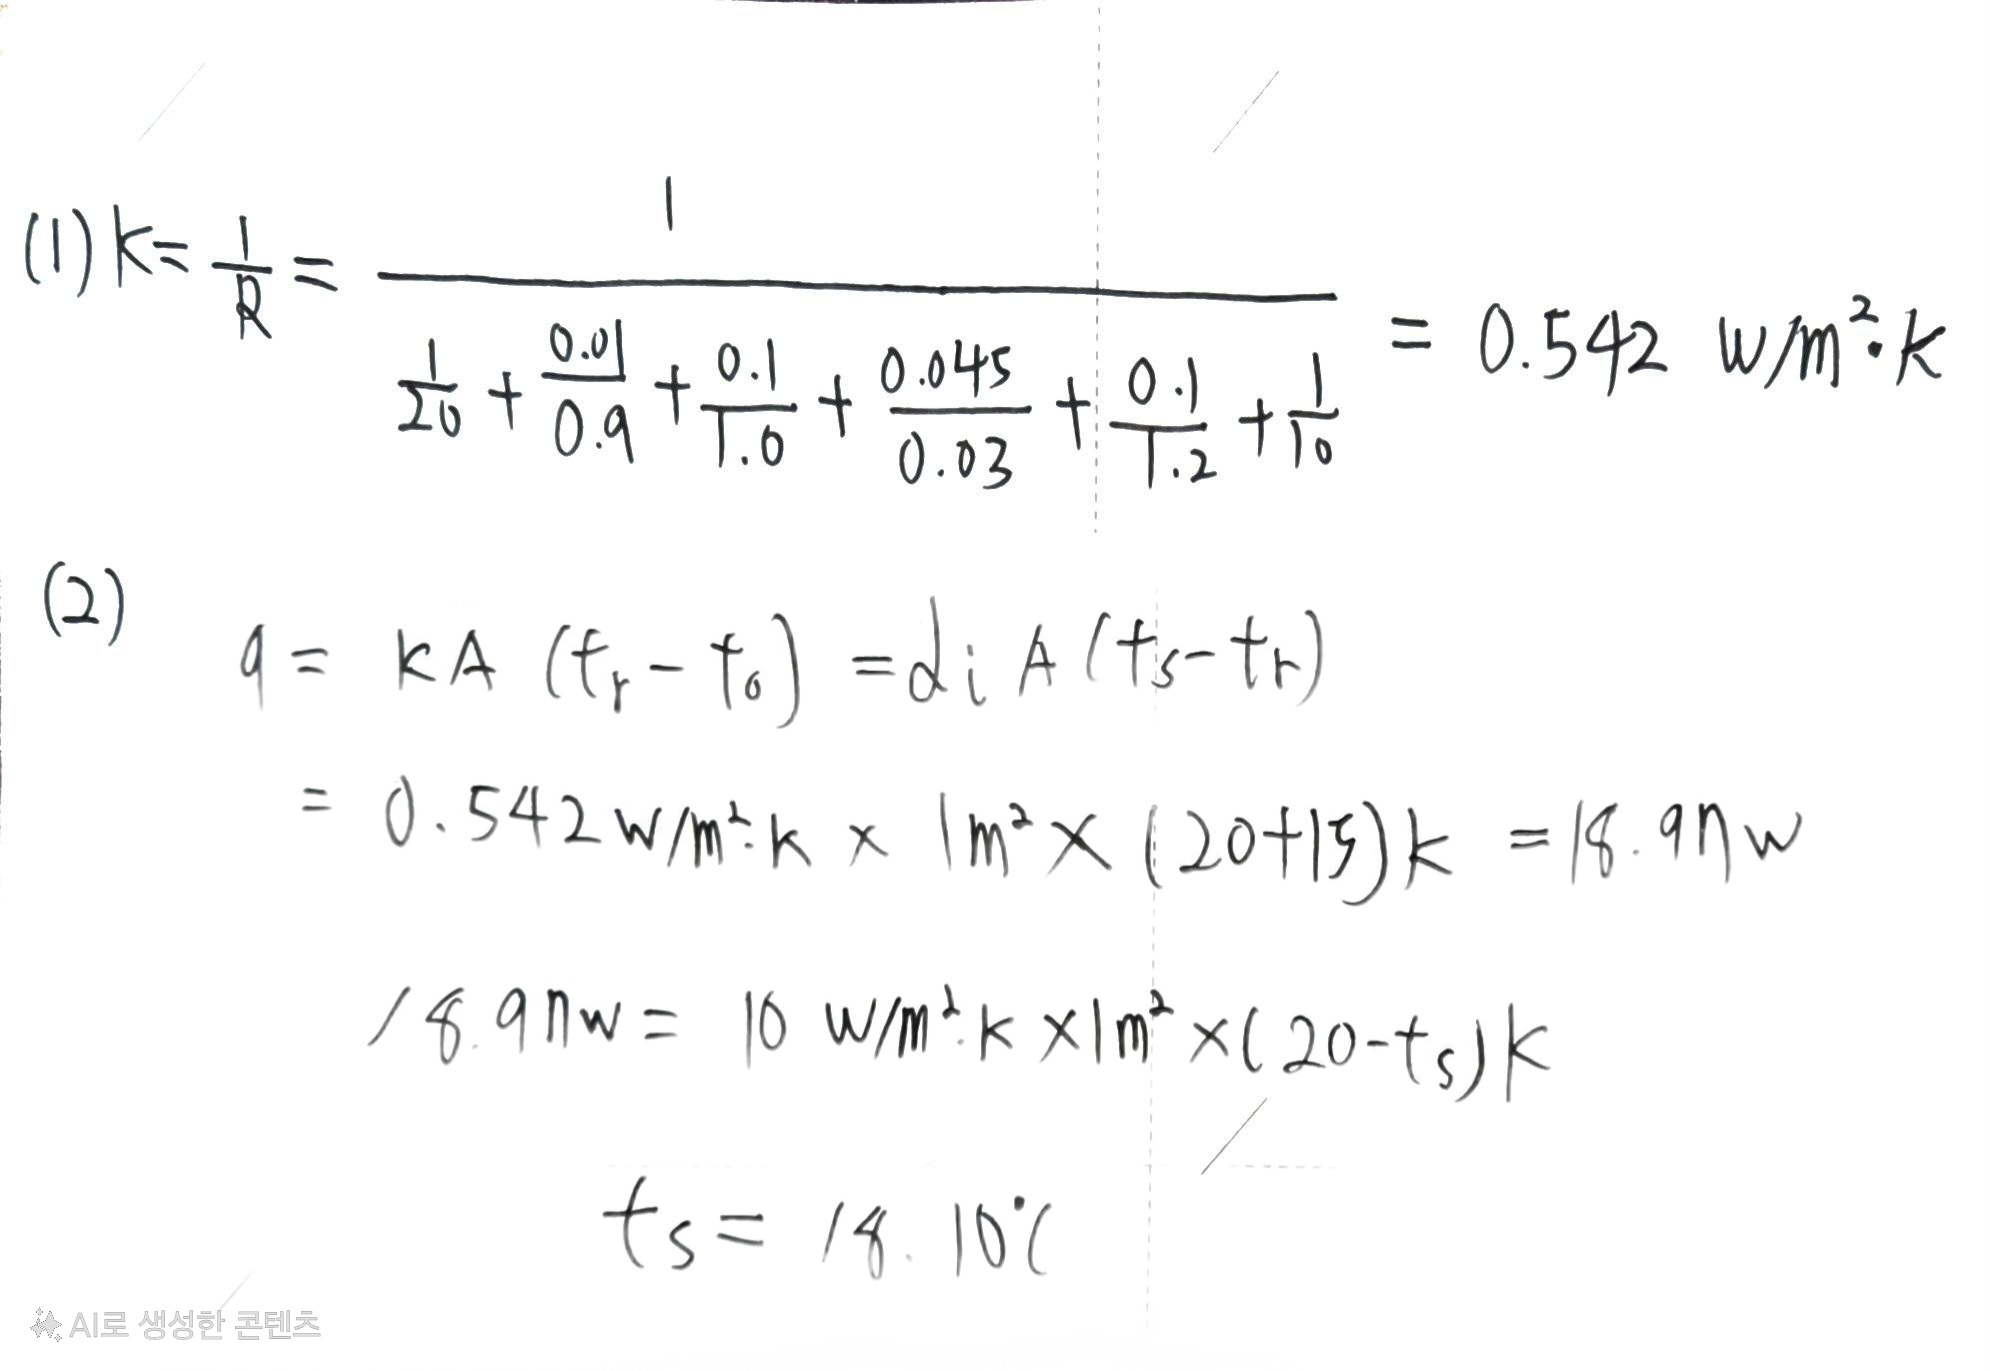 (1) K = 1/R = 1 / (1/20 + 0.01/0.9 + 0.1/1.0 + 0.045/0.03 + 0.1/1.2 + 1/10) = 0.542 W/m²·K
(2)
q = KA (tr - to) = αi A (ts - tr)
= 0.542 W/m²·K × 1m² × (20+15)K = 18.97 W
18.97 W = 10 W/m²·K × 1m² × (20 - ts) K
ts = 18.10℃
AI로 생성한 콘텐츠